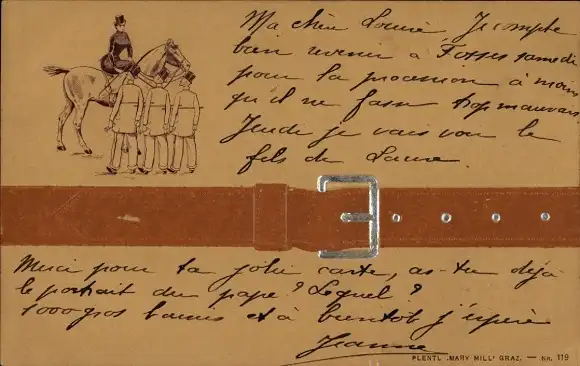 Ma chère Louise, Je compte
bien venir à Fosses samedi
pour la procession à moins
qu'il ne fasse trop mauvais
Jeudi je vais voir le
fils de Laure.
Merci pour ta jolie carte, as-tu déjà
le portrait du pape? Lequel?
1000 gros baisers et à bientôt j'espère
Jeanne
PLENTL „MARY MILL" GRAZ. — NR. 119